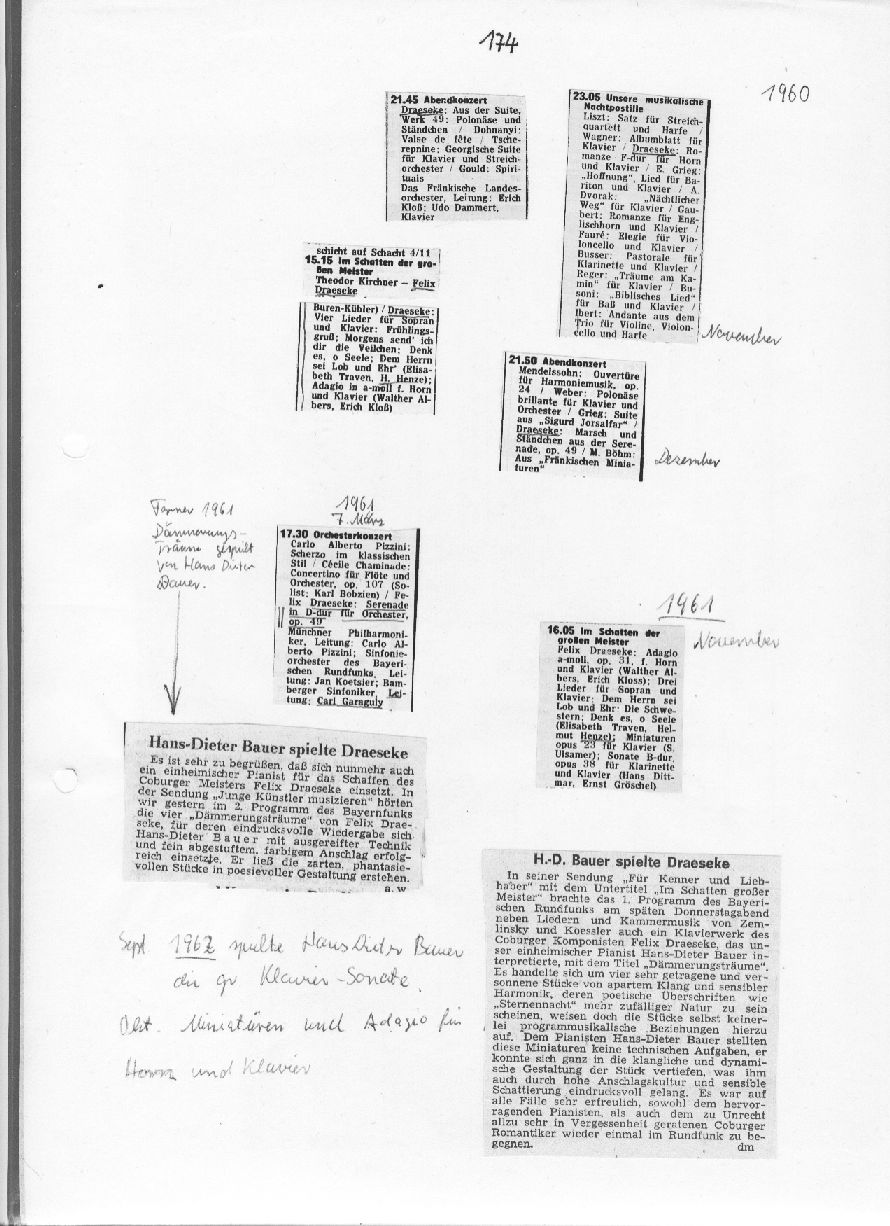 174
1960
21.45 Abendkonzert
Draeseke: Aus der Suite,
Werk 49: Polonäse und
Ständchen / Dohnanyi:
Valse de fête / Tsche-
repnine: Georgische Suite
für Klavier und Streich-
orchester / Gould: Spiri-
tuals
Das Fränkische Landes-
orchester, Leitung: Erich
Kloß; Udo Dammert,
Klavier
23.05 Unsere musikalische
Nachtpostille
Liszt: Satz für Streich-
quartett und Harfe /
Wagner: Albumblatt für
Klavier / Draeseke: Ro-
manze F-dur für Horn
und Klavier / E. Grieg:
„Hoffnung", Lied für Ba-
riton und Klavier / A.
Dvorak: „Nächtlicher
Weg" für Klavier / Gau-
bert: Romanze für Eng-
lischhorn und Klavier /
Fauré: Elegie für Vio-
loncello und Klavier /
Busser: Pastorale für
Klarinette und Klavier /
Reger: „Träume am Ka-
min" für Klavier / Bu-
soni: „Biblisches Lied"
für Baß und Klavier /
Ibert: Andante aus dem
Trio für Violine, Violon-
cello und Harfe
November
schicht auf Schacht 4/11
15.15 Im Schatten der gro-
ßen Meister
Theodor Kirchner – Felix
Draeseke
Buren-Kühler) / Draeseke:
Vier Lieder für Sopran
und Klavier: Frühlings-
gruß; Morgens send' ich
dir die Veilchen; Denk
es, o Seele; Dem Herrn
sei Lob und Ehr' (Elisa-
beth Traven, H. Henze);
Adagio in a-moll f. Horn
und Klavier (Walther Al-
bers, Erich Kloß)
21.50 Abendkonzert
Mendelssohn: Ouvertüre
für Harmoniemusik, op.
24 / Weber: Polonäse
brillante für Klavier und
Orchester / Grieg: Suite
aus „Sigurd Jorsalfar" /
Draeseke: Marsch und
Ständchen aus der Sere-
nade, op. 49 / M. Böhm:
Aus „Fränkischen Minia-
turen"
Dezember
1961
Dämmerungs-
Träume gespielt
von Hans Dieter
Bauer.
1961
7. März
17.30 Orchesterkonzert
Carlo Alberto Pizzini:
Scherzo im klassischen
Stil / Cécile Chaminade:
Concertino für Flöte und
Orchester, op. 107 (So-
list: Karl Bobzien) / Fe-
lix Draeseke: Serenade
in D-dur für Orchester,
op. 49
Münchner Philharmoni-
ker, Leitung: Carlo Al-
berto Pizzini; Sinfonie-
orchester des Bayeri-
schen Rundfunks, Lei-
tung: Jan Koetsier; Bam-
berger Sinfoniker, Lei-
tung: Carl Garaguly
1961
November
16.05 Im Schatten der
großen Meister
Felix Draeseke: Adagio
a-moll, op. 31, f. Horn
und Klavier (Walther Al-
bers, Erich Kloss); Drei
Lieder für Sopran und
Klavier: Dem Herrn sei
Lob und Ehr; Die Schwe-
stern; Denk es, o Seele
(Elisabeth Traven, Hel-
mut Henze); Miniaturen
opus 23 für Klavier (S.
Ulsamer); Sonate B-dur,
opus 38 für Klarinette
und Klavier (Hans Ditt-
mar, Ernst Gröschel)
Hans-Dieter Bauer spielte Draeseke
Es ist sehr zu begrüßen, daß sich nunmehr auch
ein einheimischer Pianist für das Schaffen des
Coburger Meisters Felix Draeseke einsetzt. In
der Sendung „Junge Künstler musizieren" hörten
wir gestern im 2. Programm des Bayernfunks
die vier „Dämmerungsträume" von Felix Drae-
seke, für deren eindrucksvolle Wiedergabe sich
Hans-Dieter Bauer mit ausgereifter Technik
und fein abgestuftem, farbigem Anschlag erfolg-
reich einsetzte. Er ließ die zarten, phantasie-
vollen Stücke in poesievoller Gestaltung erstehen.
a. w
Sept. 1962 spielte Hans Dieter Bauer
die gr Klavier-Sonate.
Okt. Miniatüren und Adagio für
Horn und Klavier
H.-D. Bauer spielte Draeseke
In seiner Sendung „Für Kenner und Lieb-
haber" mit dem Untertitel „Im Schatten großer
Meister" brachte das 1. Programm des Bayeri-
schen Rundfunks am späten Donnerstagabend
neben Liedern und Kammermusik von Zem-
linsky und Koessler auch ein Klavierwerk des
Coburger Komponisten Felix Draeseke, das un-
ser einheimischer Pianist Hans-Dieter Bauer in-
terpretierte, mit dem Titel „Dämmerungsträume".
Es handelte sich um vier sehr getragene und ver-
sonnene Stücke von apartem Klang und sensibler
Harmonik, deren poetische Überschriften wie
„Sternennacht" mehr zufälliger Natur zu sein
scheinen, weisen doch die Stücke selbst keiner-
lei programmusikalische Beziehungen hierzu
auf. Dem Pianisten Hans-Dieter Bauer stellten
diese Miniaturen keine technischen Aufgaben, er
konnte sich ganz in die klangliche und dynami-
sche Gestaltung der Stück vertiefen, was ihm
auch durch hohe Anschlagskultur und sensible
Schattierung eindrucksvoll gelang. Es war auf
alle Fälle sehr erfreulich, sowohl dem hervor-
ragenden Pianisten, als auch dem zu Unrecht
allzu sehr in Vergessenheit geratenen Coburger
Romantiker wieder einmal im Rundfunk zu be-
gegnen.
dm